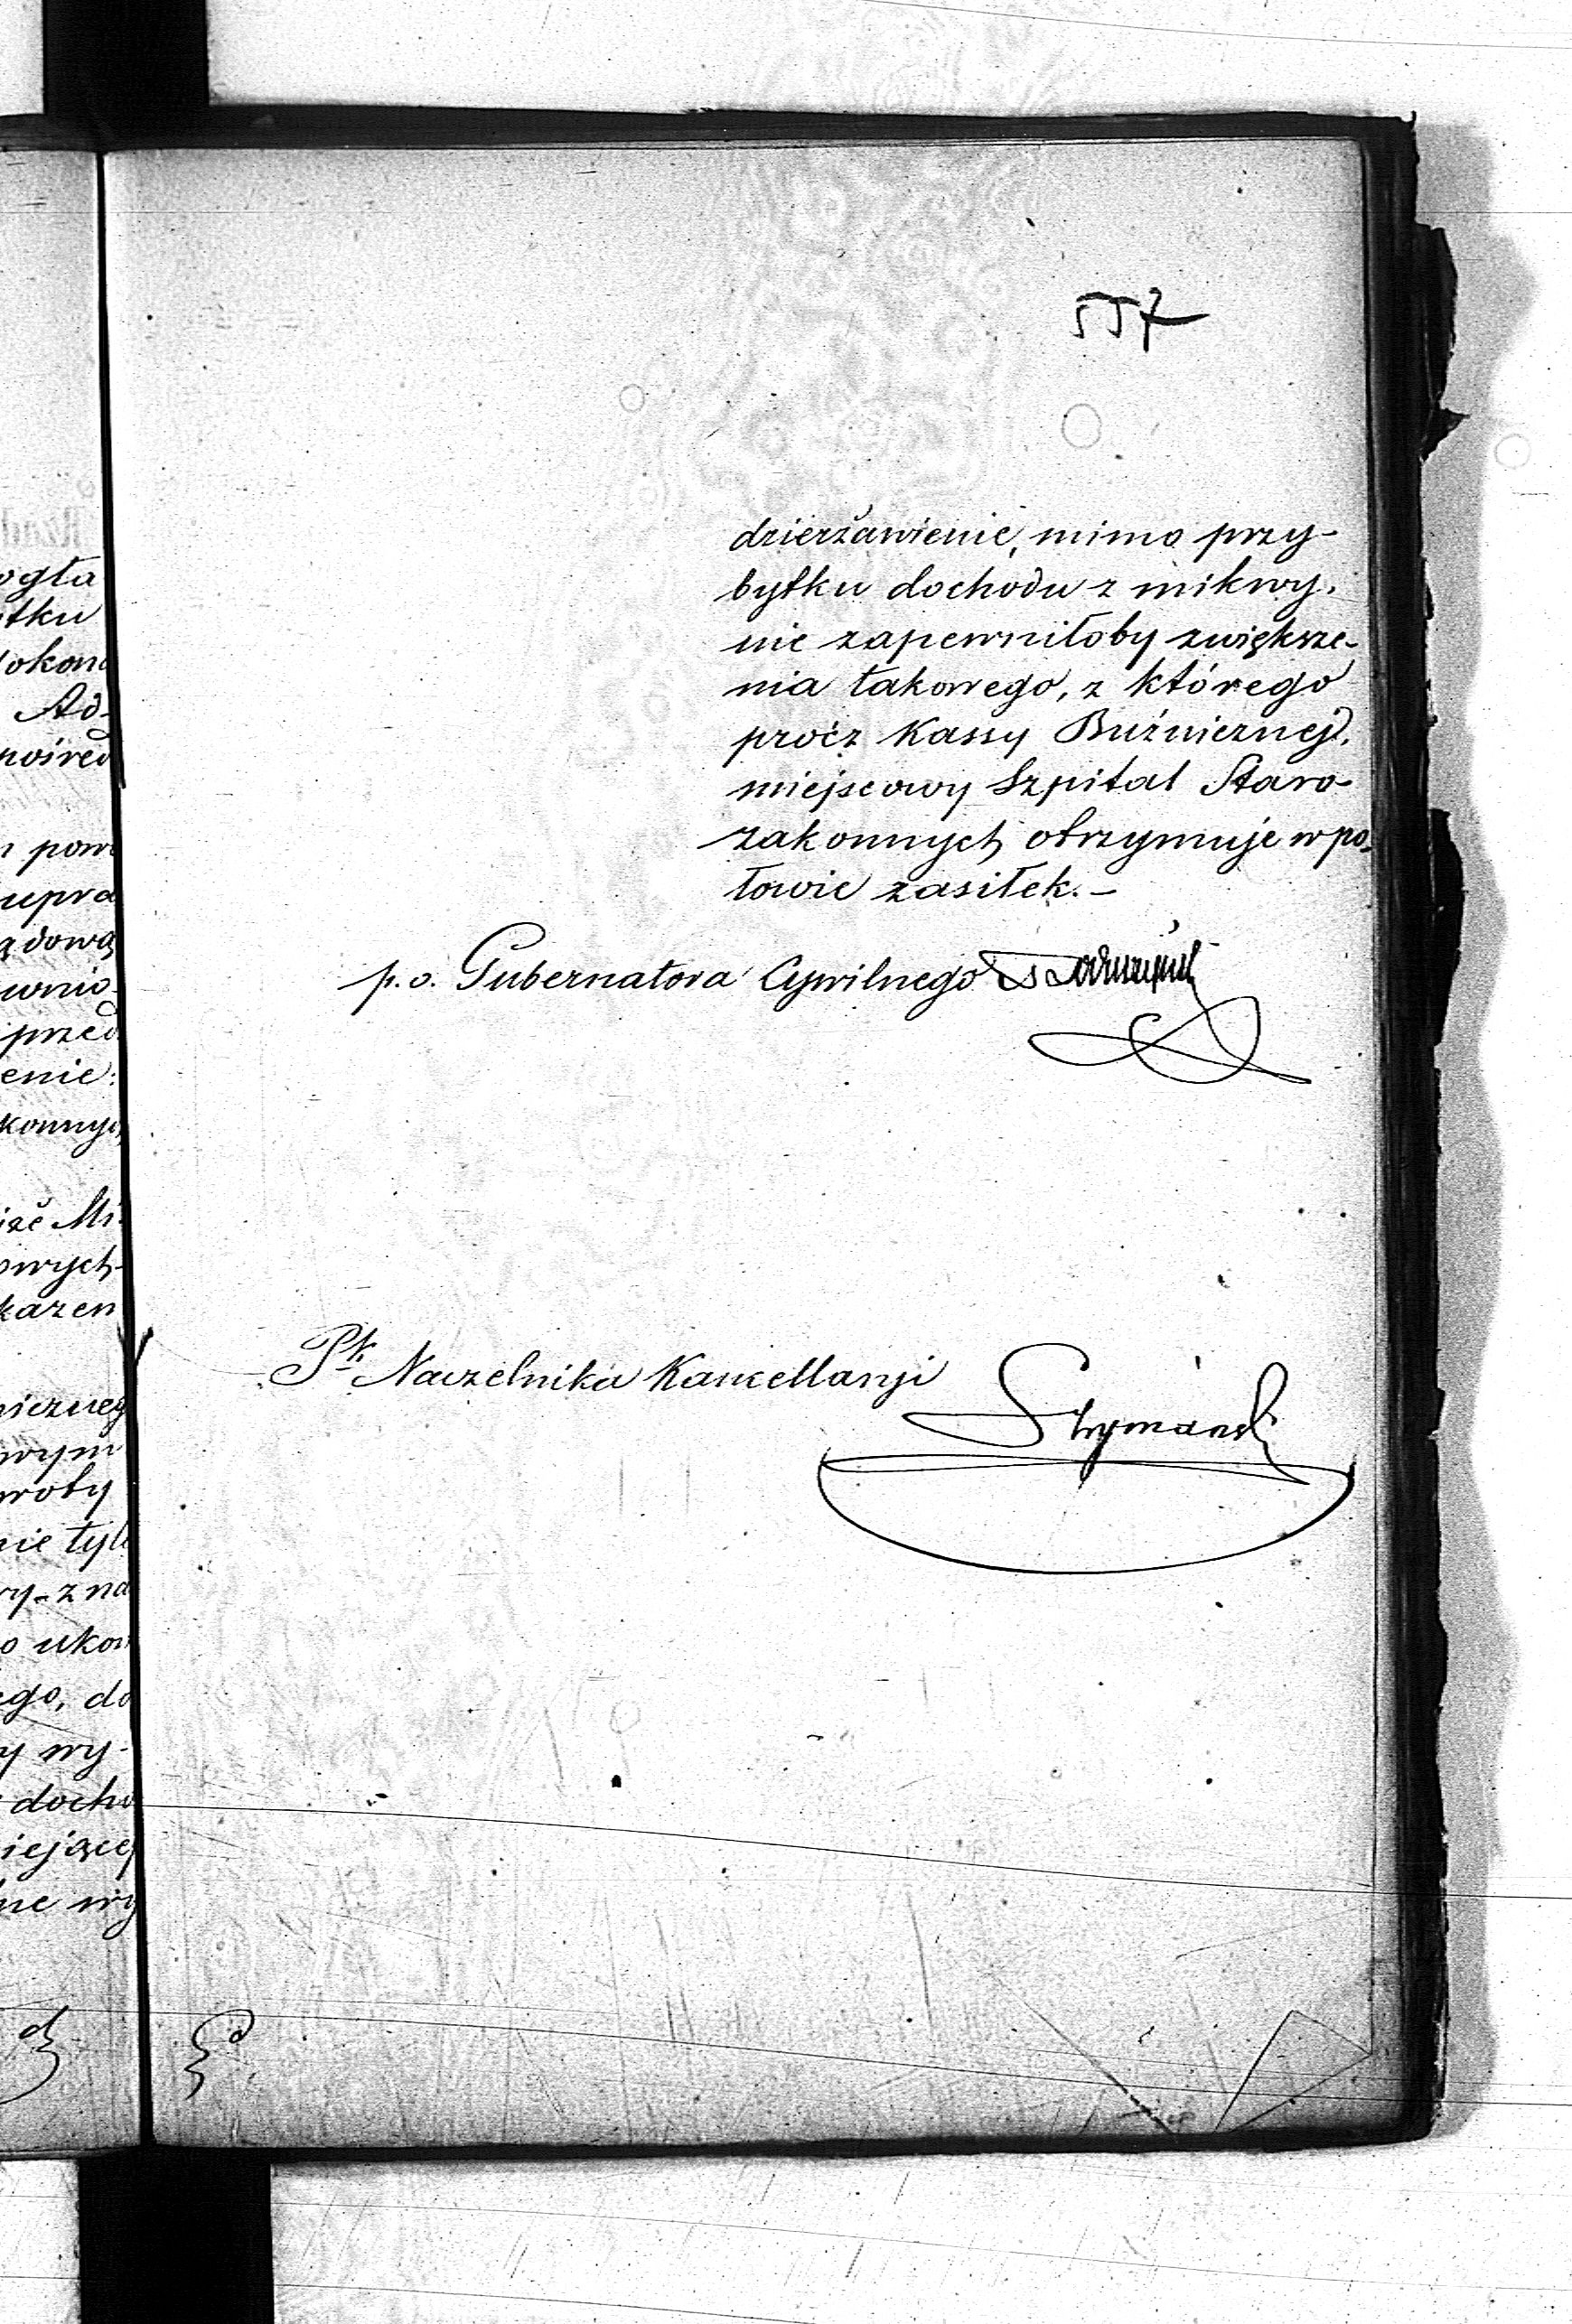 557
dzierżawienie, mimo przy-
bytku dochodu z mikwy,
nie zapewniłoby zwiększe-
nia takowego, z którego
procz Kassy Buźniczney,
miejscowy Szpital Staro-
zakonnych otrzymuje w po-
łowie zasiłek.-
p.o. Gubernatora Cywilnego
Pk Naczelnika Kancellaryi
Szymański
ogła
tku
okona
Ad-
pośred
pow
upra
ądową
wnio-
przed
enie:
konnych
iże Mi-
owych-
kazen
niczneg
wym
woty
nie tyl
ry-zna
o ukon
ego, do
y wy-
docho
iejącej
ne wy